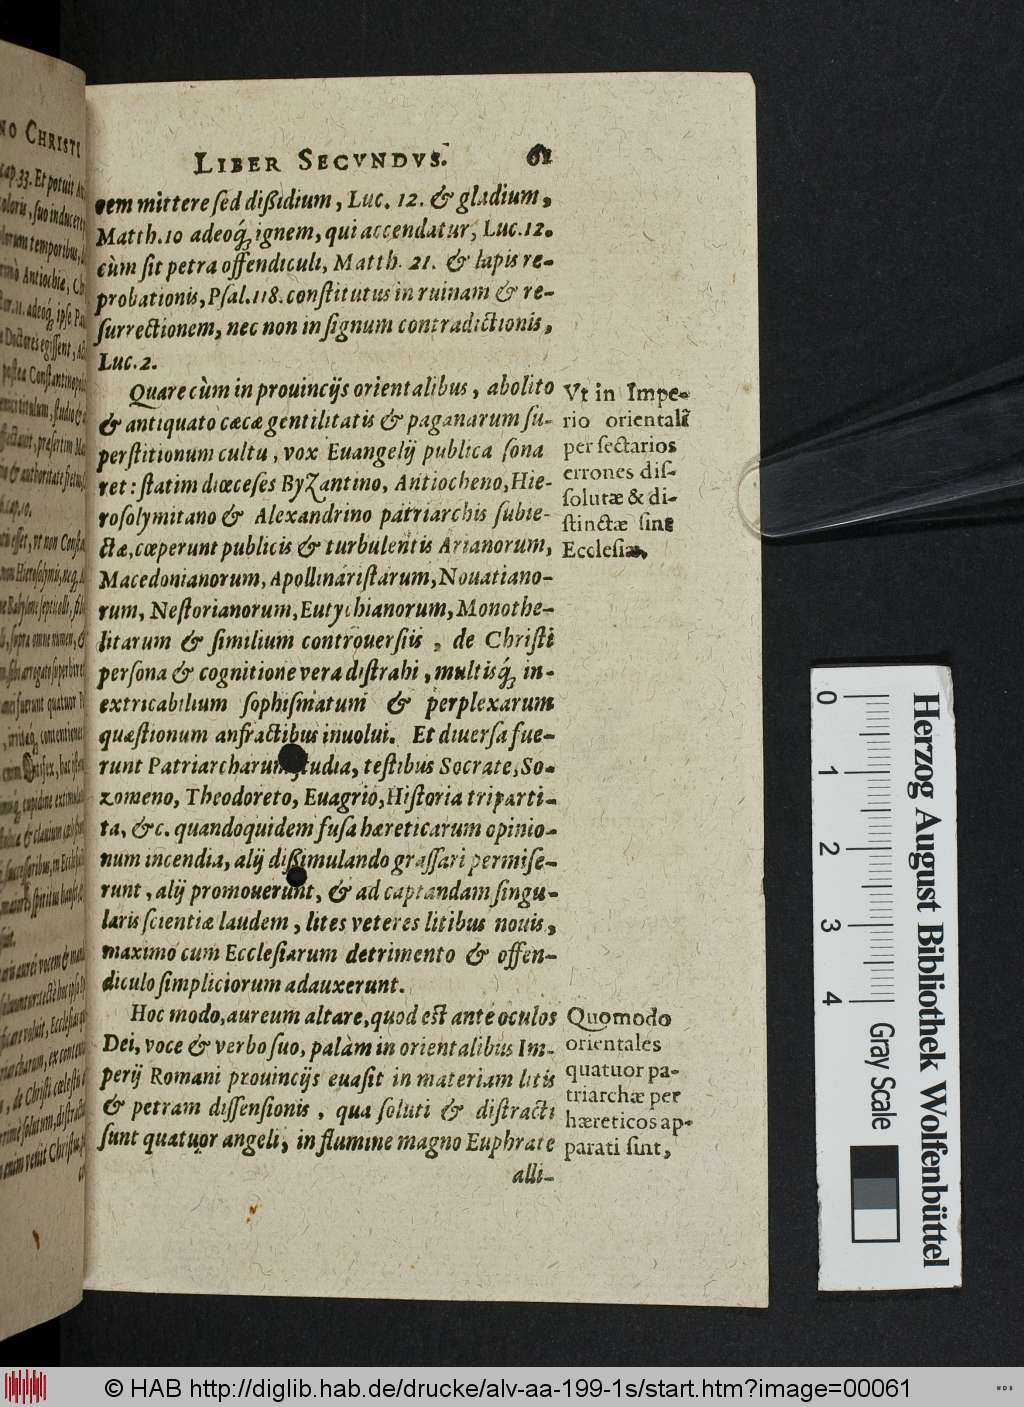 LIBER SECVNDVS. 61
cem mittere sed dißidium, Luc. 12. & gladium,
Matth.10 adeoq́; ignem, qui accendatur, Luc.12.
cùm sit petra offendiculi, Matth. 21. & lapis re-
probationis, Psal.118. constitutus in ruinam & re-
surrectionem, nec non in signum contradictionis,
Luc.2.
Quare cùm in prouincijs orientalibus, abolito
& antiquato cæcæ gentilitatis & paganarum su-
perstitionum cultu, vox Euangelij publica sona
ret: statim diœceses Byzantino, Antiocheno, Hie-
rosolymitano & Alexandrino patriarchis subie-
ctæ, cœperunt publicis & turbulentis Arianorum,
Macedonianorum, Apollinaristarum, Nouatiano-
rum, Nestorianorum, Eutychianorum, Monothe-
litarum & similium controuersiis, de Christi
persona & cognitione vera distrahi, multisq́; in-
extricabilium sophismatum & perplexarum
quæstionum anfractibus inuolui. Et diuersa fue-
runt Patriarcharum studia, testibus Socrate, So-
zomeno, Theodoreto, Euagrio, Historia triparti-
ta, &c. quandoquidem fusa hæreticarum opinio-
num incendia, alij dißimulando grassari permise-
runt, alij promouerunt, & ad captandam singu-
laris scientiæ laudem, lites veteres litibus nouis,
maximo cum Ecclesiarum detrimento & offen-
diculo simpliciorum adauxerunt.
Hoc modo, aureum altare, quod est ante oculos
Dei, voce & verbo suo, palàm in orientalibus Im-
perij Romani prouincijs euasit in materiam litis
& petram dissensionis, qua soluti & distracti
sunt quatuor angeli, in flumine magno Euphrate
alli-
Vt in Impe-
rio orientali
per sectarios
errones dis-
solutæ & di-
stinctæ sint
Ecclesiæ,
Quomodo
orientales
quatuor pa-
triarchæ per
hæreticos ap-
parati sint,
NO CHRISTI
cap.33. Et potuit
0 1 2 3 4
Gray Scale
Herzog August Bibliothek Wolfenbüttel
© HAB http://diglib.hab.de/drucke/alv-aa-199-1s/start.htm?image=00061
WDB